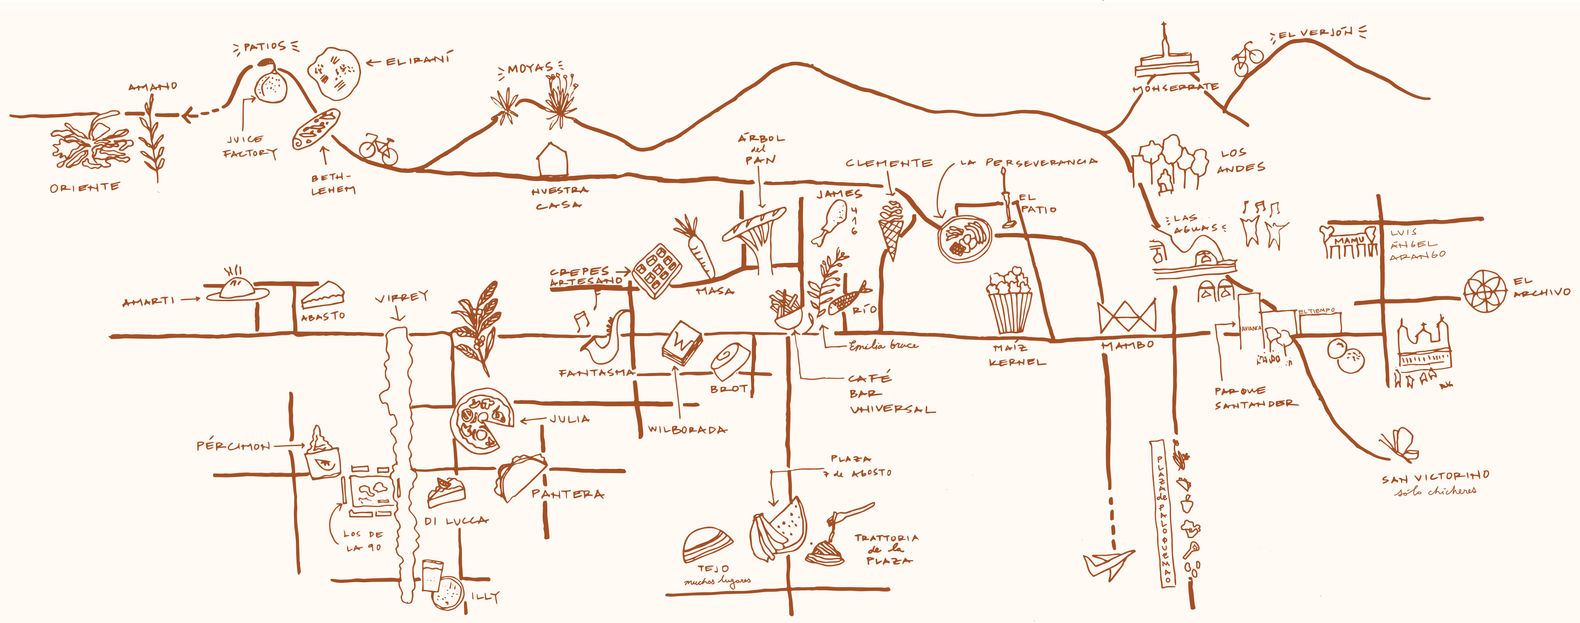 PATIOS
ELIRANÍ
AMANO
JUICE
FACTORY
BETH-
LEHEM
ORIENTE
MOYAS
NUESTRA
CASA
ÁRBOL
del
PAN
CLEMENTE
LA PERSEVERANCIA
MONSERRATE
EL VERJÓN
LOS
ANDES
JAMES
4
1
6
EL
PATIO
LAS
AGUAS
MAMU
LUIS
ÁNGEL
ARANGO
EL
ARCHIVO
AMARTI
ABASTO
VIRREY
CREPES
ARTESANO
MASA
RÍO
Emilia Grace
FANTASMA
W
BROT
WILBORADA
CAFÉ
BAR
UNIVERSAL
MAÍZ
KERNEL
MAMBO
AVIANCA
EL TIEMPO
PARQUE
SANTANDER
JULIA
PÉRCIMON
PANTERA
DI LUCCA
LOS DE
LA 90
ILLY
PLAZA
7 de AGOSTO
TEJO
muchos lugares
TRATTORIA
de la
PLAZA
PLAZA de PALOQUEMAO
SAN VICTORINO
sólo chicheres